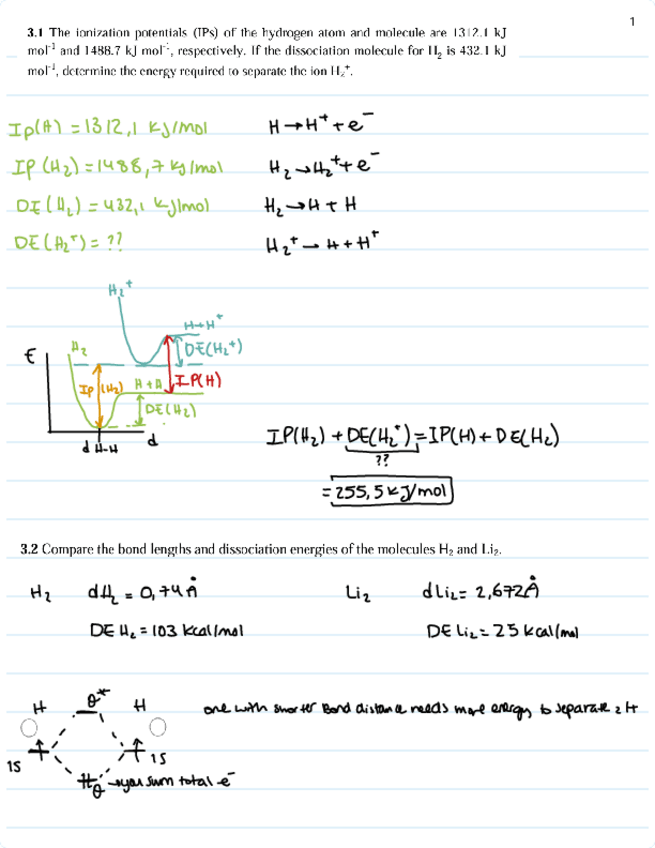 1
3.1 The ionization potentials (IPs) of the hydrogen atom and molecule are 1312.1 kJ
mol⁻¹ and 1488.7 kJ mol⁻¹, respectively. If the dissociation molecule for H₂ is 432.1 kJ
mol⁻¹, determine the energy required to separate the ion H₂⁺.
Ip(H) = 1312,1 KJ/mol H → H⁺ + e⁻
IP (H₂) = 1488,7 kJ/mol H₂ → H₂⁺ + e⁻
DI (H₂) = 432,1 kJ/mol H₂ → H + H
DE (H₂⁺) = ?? H₂⁺ → H + H⁺
H₂⁺
H+H⁺
E H₂ DE(H₂⁺)
Ip (H₂) H+H IP(H)
DE(H₂)
d H-H d
IP(H₂) + DE(H₂⁺) = IP(H) + DE(H₂)
??
= 255,5 kJ/mol
3.2 Compare the bond lengths and dissociation energies of the molecules H₂ and Li₂.
H₂ dH₂ = 0,74 Å Li₂ dLi₂ = 2,672Å
DE H₂ = 103 kcal/mol DE Li₂ = 25 kcal/mol
H θ* H one with shorter Bond distance needs more energy to separate 2 H
1S 1S
θ → you sum total e⁻